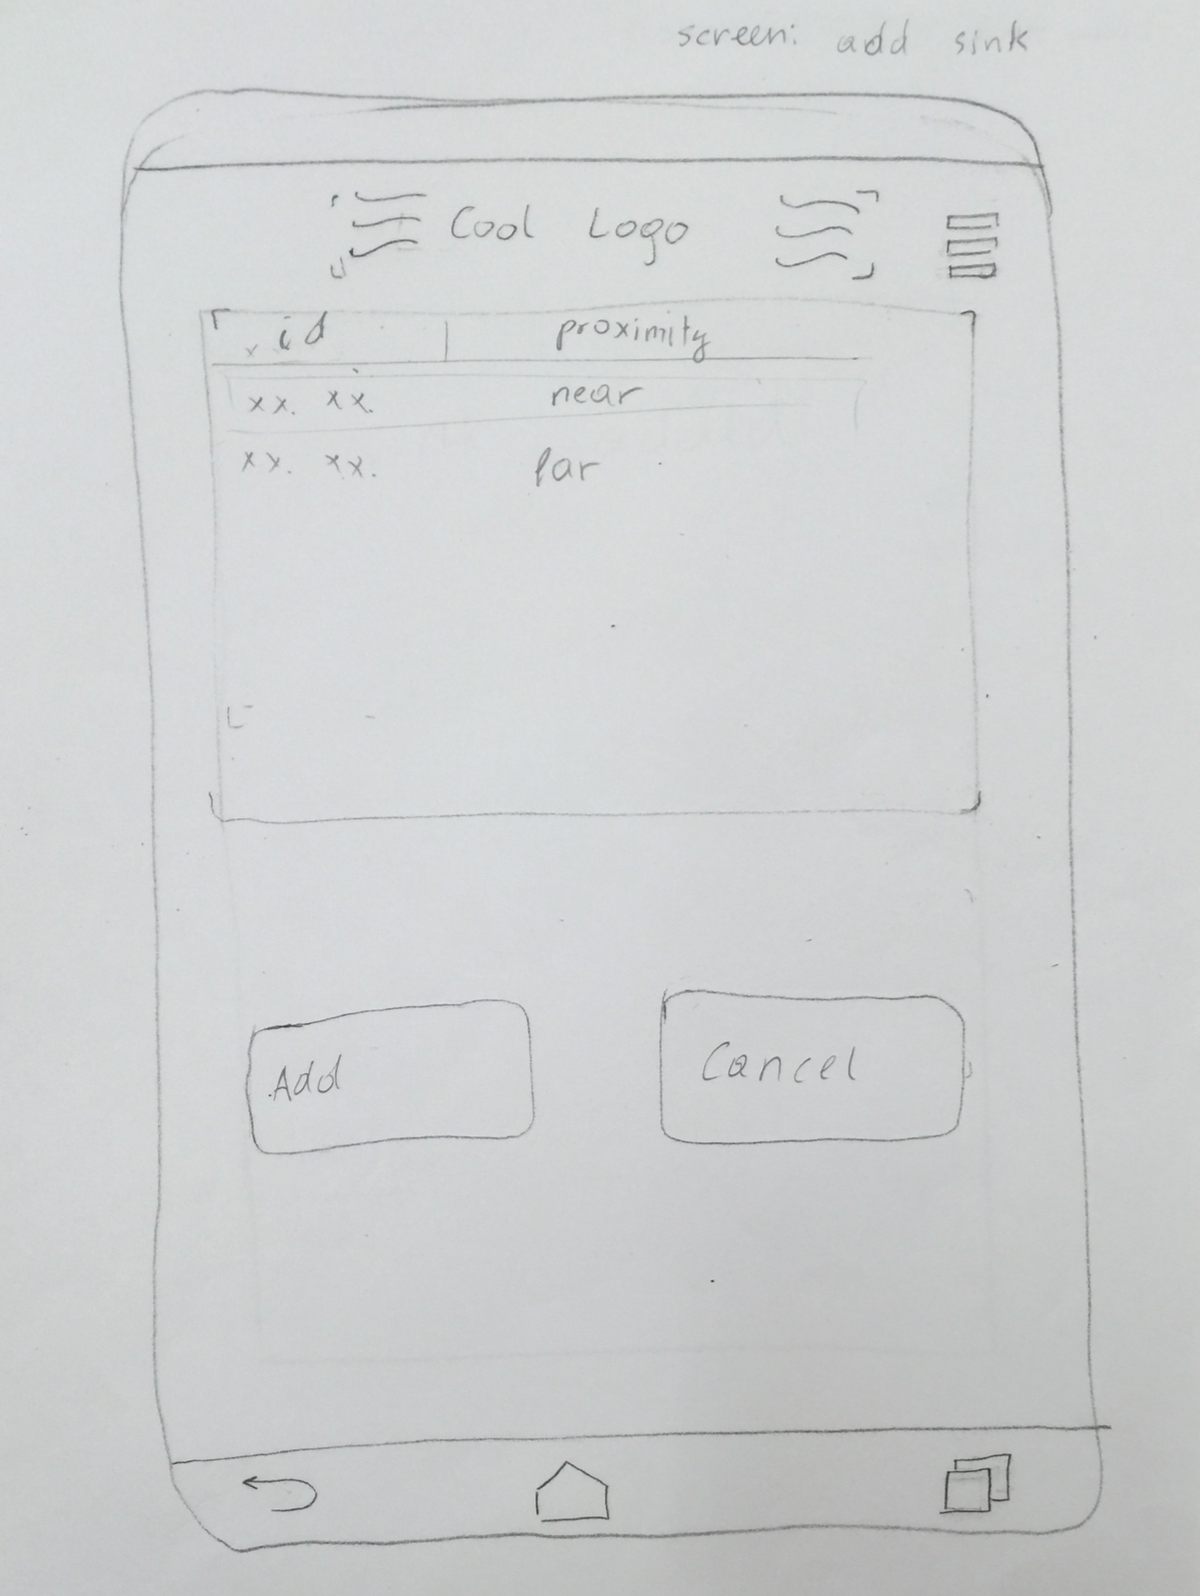 screen: add sink
Cool Logo
id proximity
xx. xx. near
xx. xx. far
Add Cancel